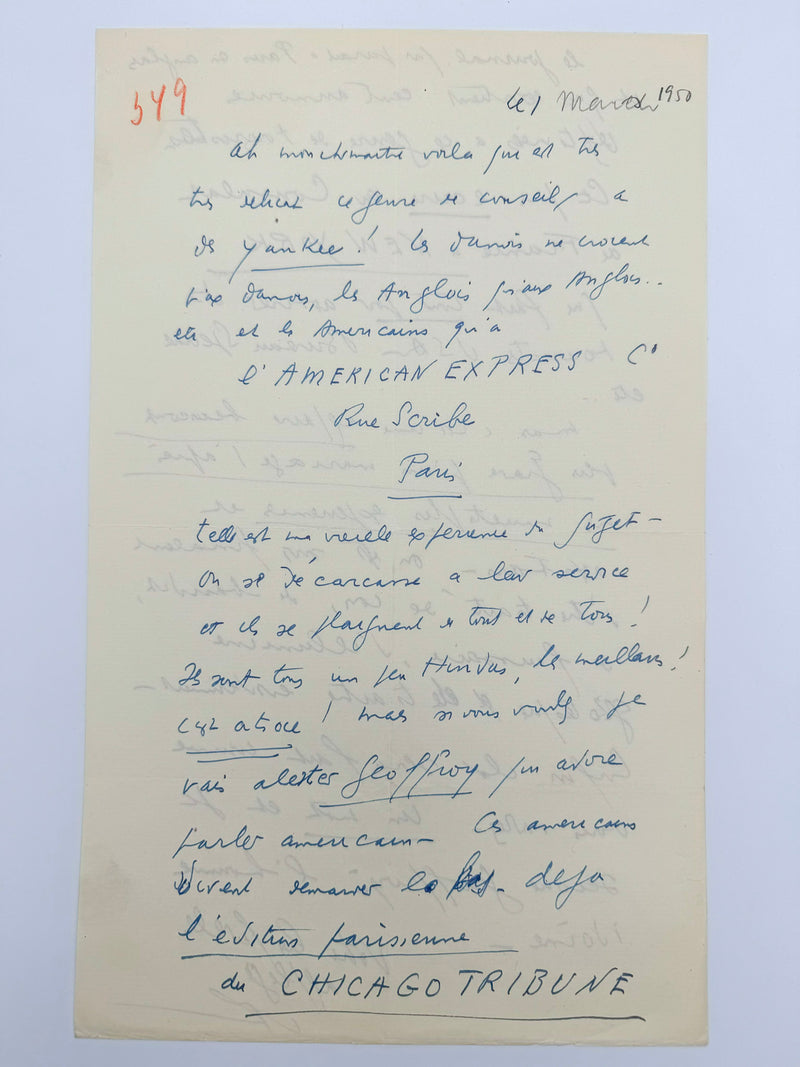 549
le 1 March 1950
Ah mon cher maitre voila qui est tres
tres delicat ce genre de conseil, a
des Yankee! Les danois ne croient
qu'aux danois, les Anglois qu'aux Anglois..
etc et les Americains qu'a
l'AMERICAN EXPRESS Co
Rue Scribe
Paris
telle est ma vieille experience du sujet -
on se décarcasse a leur service
et ils se plaignent de tout et de tous!
Ils sont tous un peu Hindus, les meilleurs!
c'est atroce! mais si vous voulez je
vais alerter Geoffroy qui adore
parler americain - Ces americains
doivent demander la bas - deja
l'éditions parisienne
du CHICAGO TRIBUNE